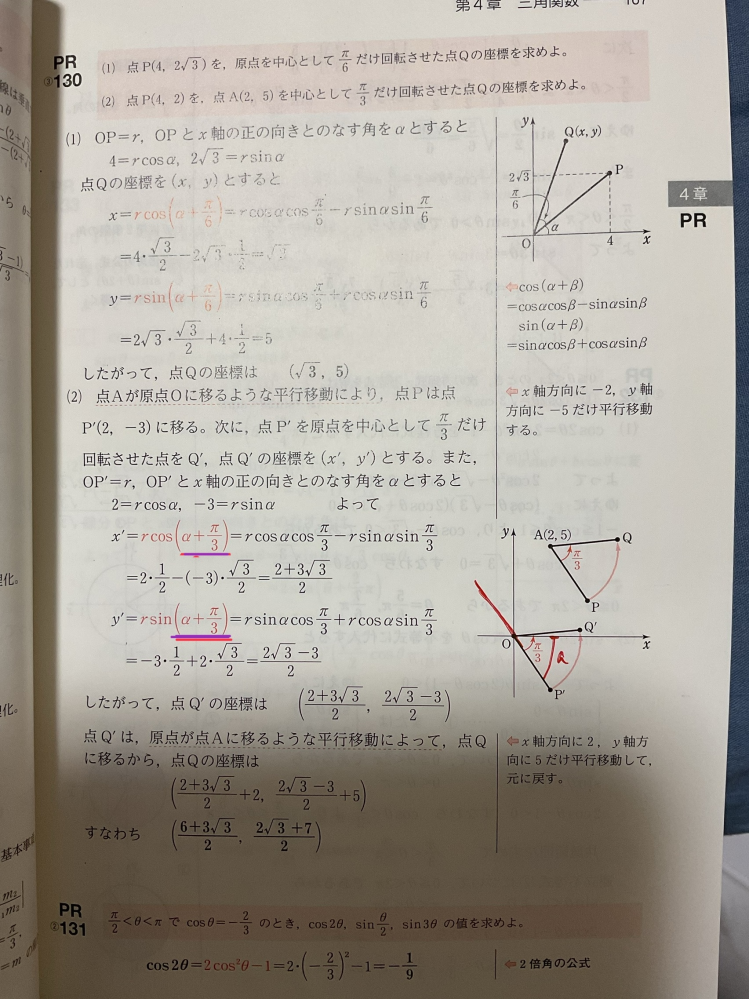 第4章 三角関数
PR
③130
(1) 点P(4, 2√3)を，原点を中心として π/6 だけ回転させた点Qの座標を求めよ。
(2) 点P(4, 2)を，点A(2, 5)を中心として π/3 だけ回転させた点Qの座標を求めよ。
(1) OP=r，OPとx軸の正の向きとのなす角をαとすると
4=rcosα，2√3=rsinα
点Qの座標を(x, y)とすると
x=rcos(α+π/6)=rcosαcosπ/6−rsinαsinπ/6
=4・√3/2−2√3・1/2=√3
y=rsin(α+π/6)=rsinαcosπ/6+rcosαsinπ/6
=2√3・√3/2+4・1/2=5
したがって，点Qの座標は (√3, 5)
y
Q(x, y)
2√3
P
π/6
α
O
4
x
4章
PR
⇦cos(α+β)
=cosαcosβ−sinαsinβ
sin(α+β)
=sinαcosβ+cosαsinβ
(2) 点Aが原点Oに移るような平行移動により，点Pは点
P′(2, −3)に移る。次に，点P′を原点を中心として π/3 だけ
回転させた点をQ′，点Q′の座標を(x′, y′)とする。また，
OP′=r，OP′とx軸の正の向きとのなす角をαとすると
2=rcosα，−3=rsinα よって
x′=rcos(α+π/3)=rcosαcosπ/3−rsinαsinπ/3
=2・1/2−(−3)・√3/2=(2+3√3)/2
y′=rsin(α+π/3)=rsinαcosπ/3+rcosαsinπ/3
=−3・1/2+2・√3/2=(2√3−3)/2
⇦x軸方向に−2，y軸
方向に−5だけ平行移動
する。
y
A(2, 5)
Q
π/3
P
Q′
O
π/3
x
P′
したがって，点Q′の座標は ((2+3√3)/2, (2√3−3)/2)
点Q′は，原点が点Aに移るような平行移動によって，点Q
に移るから，点Qの座標は
((2+3√3)/2+2, (2√3−3)/2+5)
すなわち ((6+3√3)/2, (2√3+7)/2)
⇦x軸方向に2，y軸方
向に5だけ平行移動して，
元に戻す。
PR
②131
π/2<θ<π で cosθ=−2/3 のとき，cos2θ，sinθ/2，sin3θ の値を求めよ。
cos2θ=2cos²θ−1=2・(−2/3)²−1=−1/9
⇦2倍角の公式